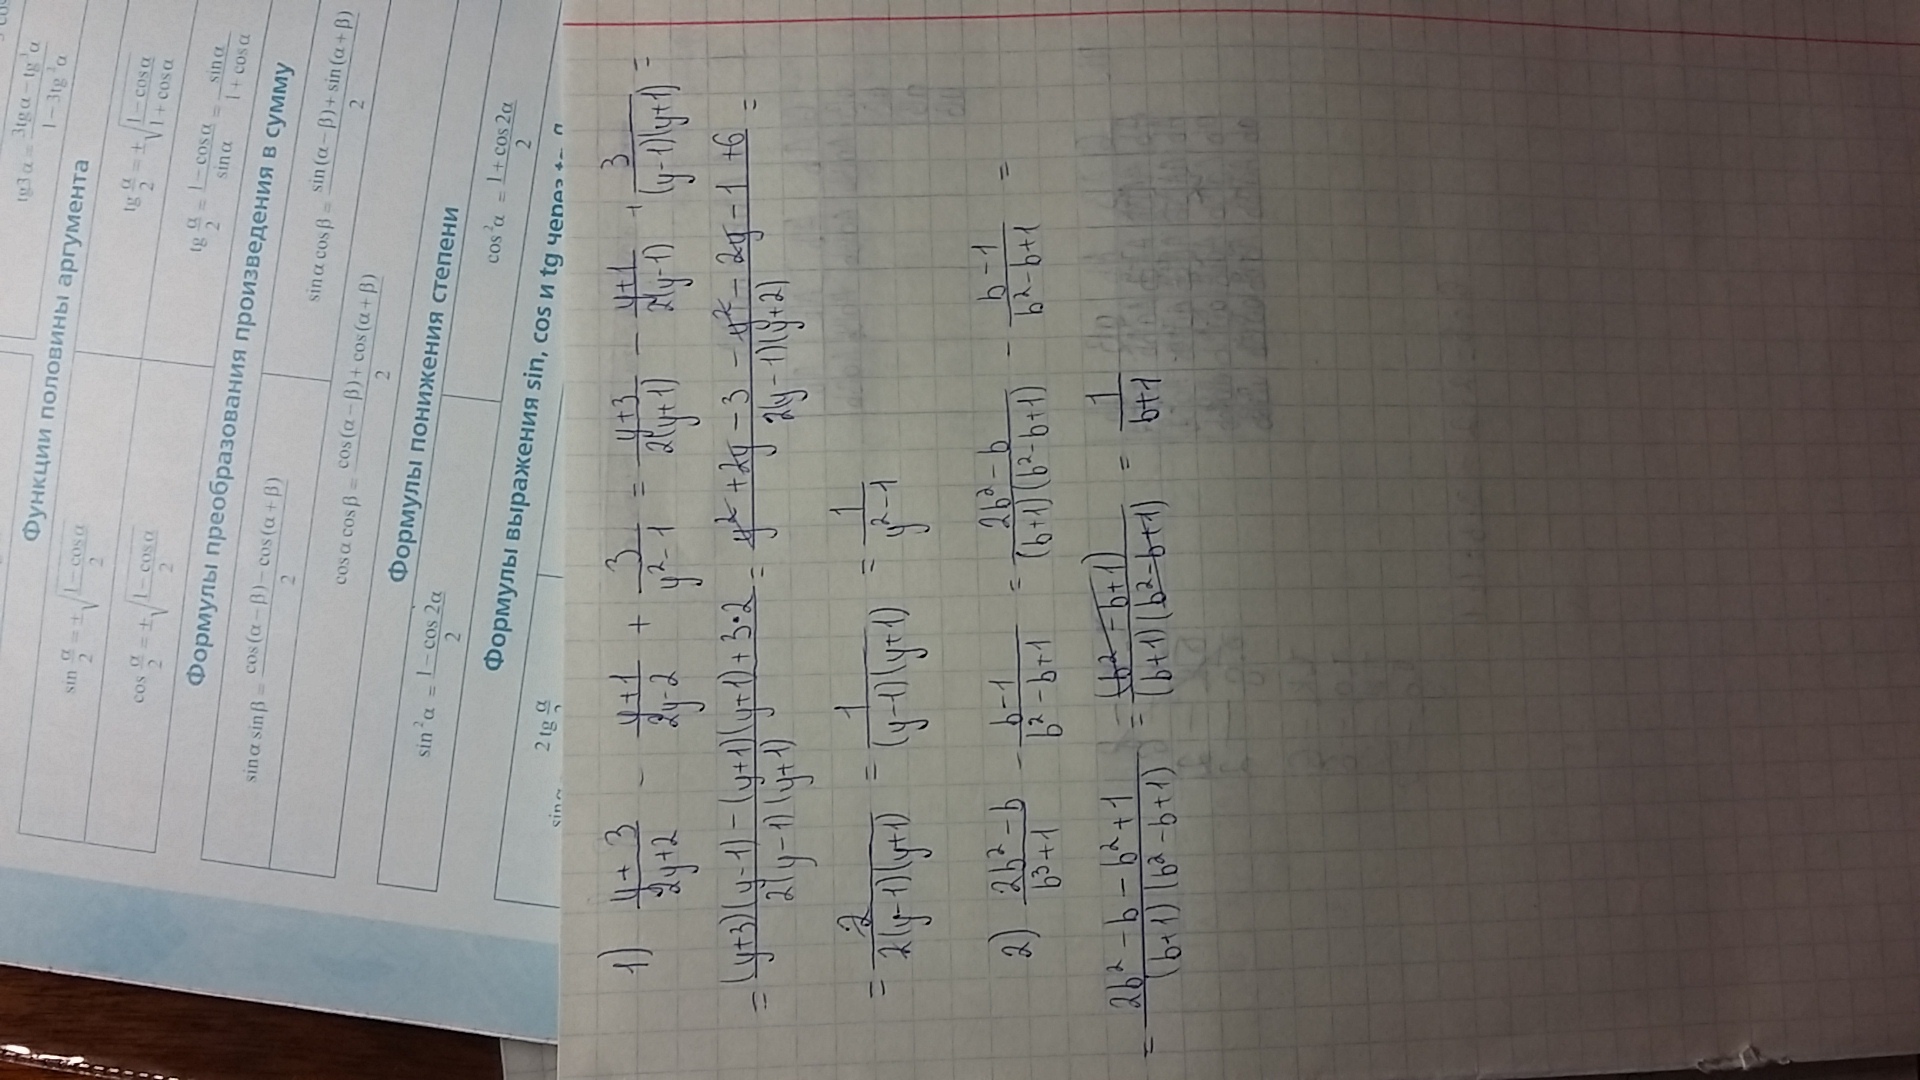 tg3α = (3tgα − tg³α)/(1 − 3tg²α)
Функции половины аргумента
sin α/2 = ±√((1−cosα)/2)
tg α/2 = ±√((1−cosα)/(1+cosα))
cos α/2 = ±√((1−cosα)/2)
tg α/2 = (1−cosα)/sinα = sinα/(1+cosα)
Формулы преобразования произведения в сумму
sinα sinβ = (cos(α−β)−cos(α+β))/2
sinα cosβ = (sin(α−β)+sin(α+β))/2
cosα cosβ = (cos(α−β)+cos(α+β))/2
Формулы понижения степени
sin²α = (1−cos2α)/2
cos²α = (1+cos2α)/2
Формулы выражения sin, cos и tg через
2tg α
sin
1) (y+3)/(2y+2) - (y+1)/(2y-2) + 3/(y²-1) = (y+3)/(2(y+1)) - (y+1)/(2(y-1)) + 3/((y-1)(y+1)) =
= ((y+3)(y-1)-(y+1)(y+1)+3·2)/(2(y-1)(y+1)) = (y²+2y-3-y²-2y-1+6)/(2(y-1)(y+2)) =
= 2/(2(y-1)(y+1)) = 1/((y-1)(y+1)) = 1/(y²-1)
2) (2b²-b)/(b³+1) - (b-1)/(b²-b+1) = (2b²-b)/((b+1)(b²-b+1)) - (b-1)/(b²-b+1) =
= (2b²-b-b²+1)/((b+1)(b²-b+1)) = (b²-b+1)/((b+1)(b²-b+1)) = 1/(b+1)